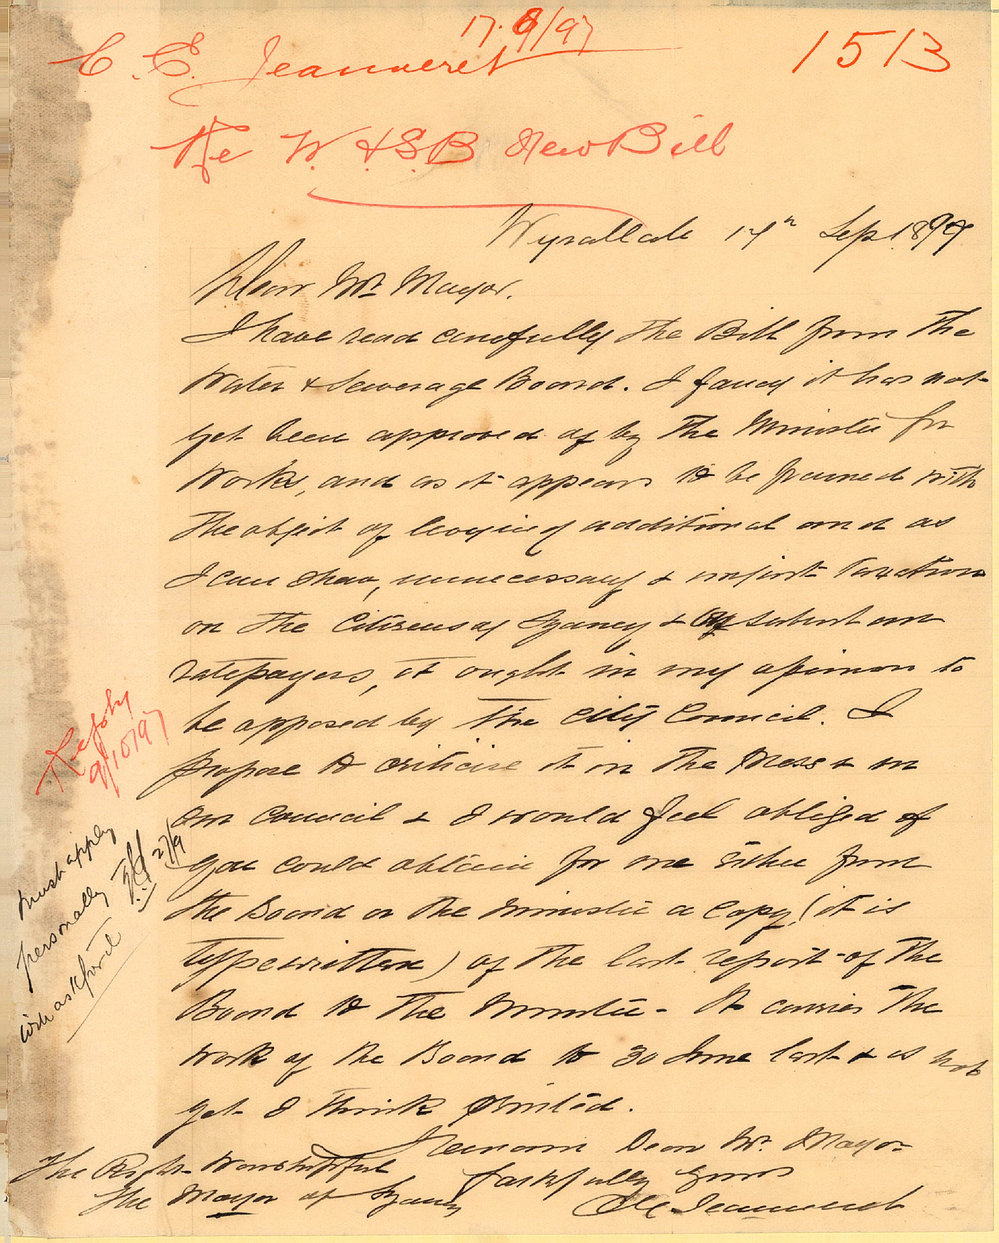 17.9/97
C. E. Jeanneret
1513
Re W. & S. B New Bill
Wyralla 14th Sep 1897
Dear Mr. Mayor.
I have read carefully the Bill from the
Water & Sewerage Board. I fancy it has not
yet been approved of by the Minister for
Works, and as it appears to be framed with
the object of levying additional and as
I can show, unnecessary & unjust taxation
on the Citizens of Sydney & suburban
ratepayers, it ought in my opinion to
be opposed by the City Council. I
propose to criticise it in the Press & in
our Council & I would feel obliged if
you could obtain for me either from
the Board or the Minister a Copy, (it is
typewritten) of the last report of the
Board to the Minister - It carries the
work of the Board to 30 June last & is not
yet I think printed.
I remain Dear Mr. Mayor
faithfully yours
C E Jeanneret
The Right Worshipful
The Mayor of Sydney
Reply
9/10/97
Must apply
personally
27/9